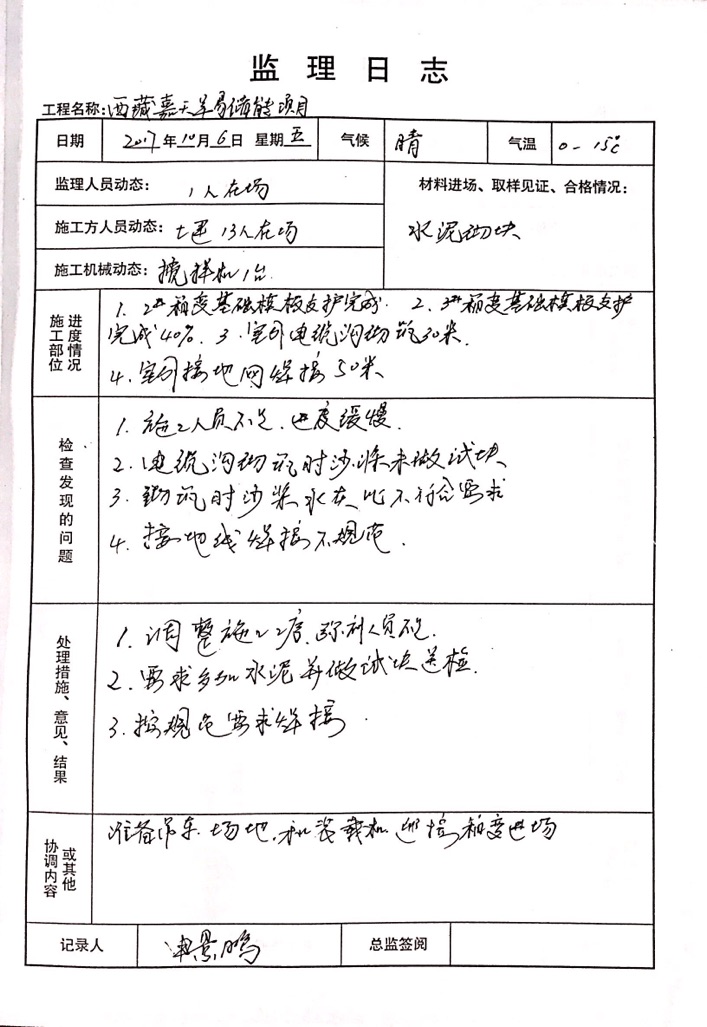 监理日志
工程名称:西藏嘉天羊易储能项目
日期 2017年10月6日 星期五 气候 晴 气温 0-15℃
监理人员动态: 1人在场
材料进场、取样见证、合格情况:
施工方人员动态: 土建13人在场
水泥砌块
施工机械动态: 搅拌机1台
进度情况
施工部位
1. 2#箱变基础模板支护完成. 2. 3#箱变基础模板支护
完成40%. 3. 室外电缆沟砌筑30米.
4. 室外接地网焊接50米
检查发现的问题
1. 施工人员不足.进度缓慢.
2. 电缆沟砌筑时沙浆未做试块
3. 砌筑时沙浆水灰比不符合要求
4. 接地线焊接不规范.
处理措施、意见、结果
1. 调整施工工序.弥补人员不足.
2. 要求多加水泥并做试块送检.
3. 按规范要求焊接.
或其他
协调内容
准备吊车.场地.和装载机 箱变进场
记录人 景鹏 总监签阅